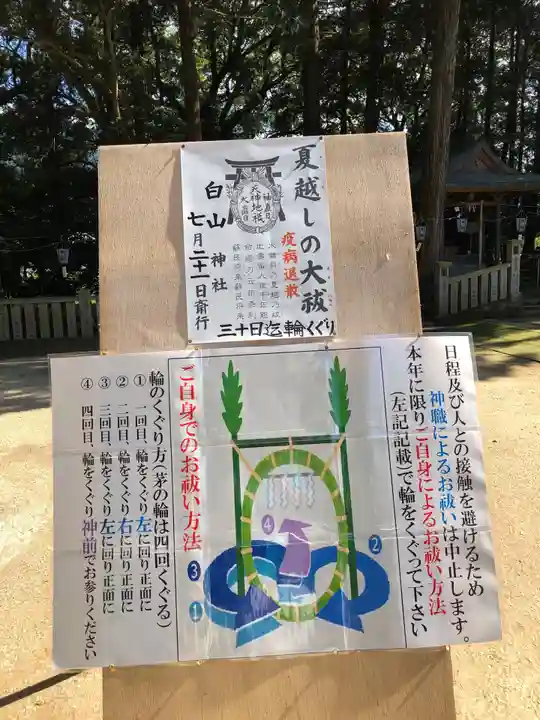 夏越しの大祓
疫病退散
天神地祇
白山神社
七月二十一日斎行
三十日迄輪くぐり
日程及び人との接触を避けるため
神職によるお祓いは中止します。
本年に限りご自身によるお祓い方法
(左記記載)で輪をくぐって下さい
④
②
③
①
ご自身でのお祓い方法
輪のくぐり方(茅の輪は四回くぐる)
① 一回目、輪をくぐり左に回り正面に
② 二回目、輪をくぐり右に回り正面に
③ 三回目、輪をくぐり左に回り正面に
④ 四回目、輪をくぐり神前でお参りください